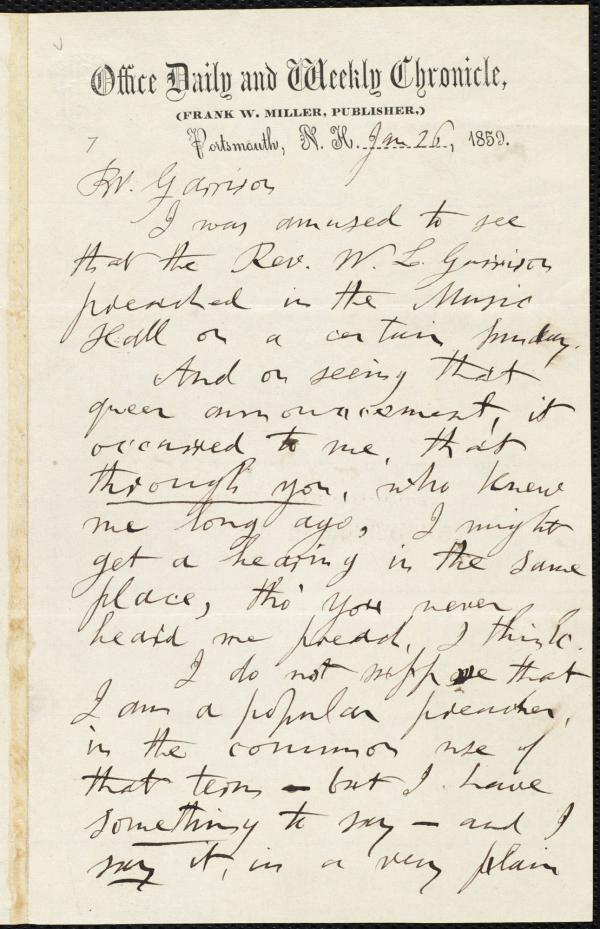 Office Daily and Weekly Chronicle,
(FRANK W. MILLER, PUBLISHER,)
7
Portsmouth, N. H. Jan 26, 1859.
Garrison
I was amused to see
that the Rev. W. L. Garrison
preached in the Music
Hall on a certain Sunday.
And on seeing that
queer announcement, it
occurred to me, that
through you, who knew
me long ago, I might
get a hearing in the same
place, tho' you never
heard me preach, I think.
I do not suppose that
I am a popular preacher,
in the common use of
that term – but I have
something to say – and I
say it, in a very plain